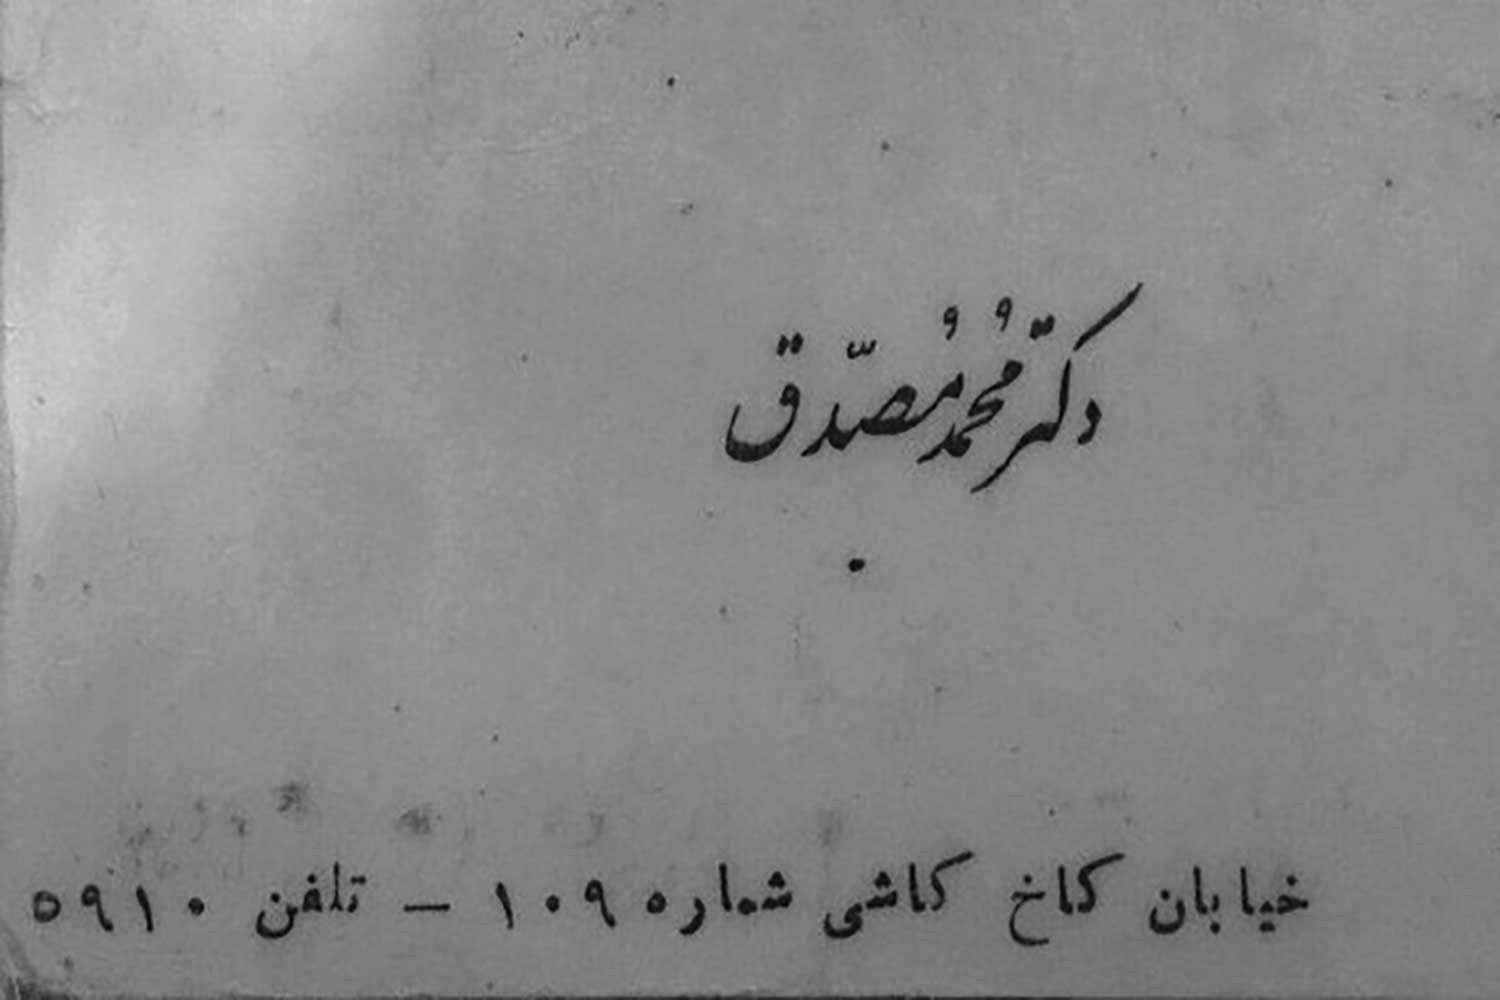 دکتر مُحمّد مُصدّق
خیابان کاخ کاشی شماره ۱۰۹ – تلفن ۵۹۱۰